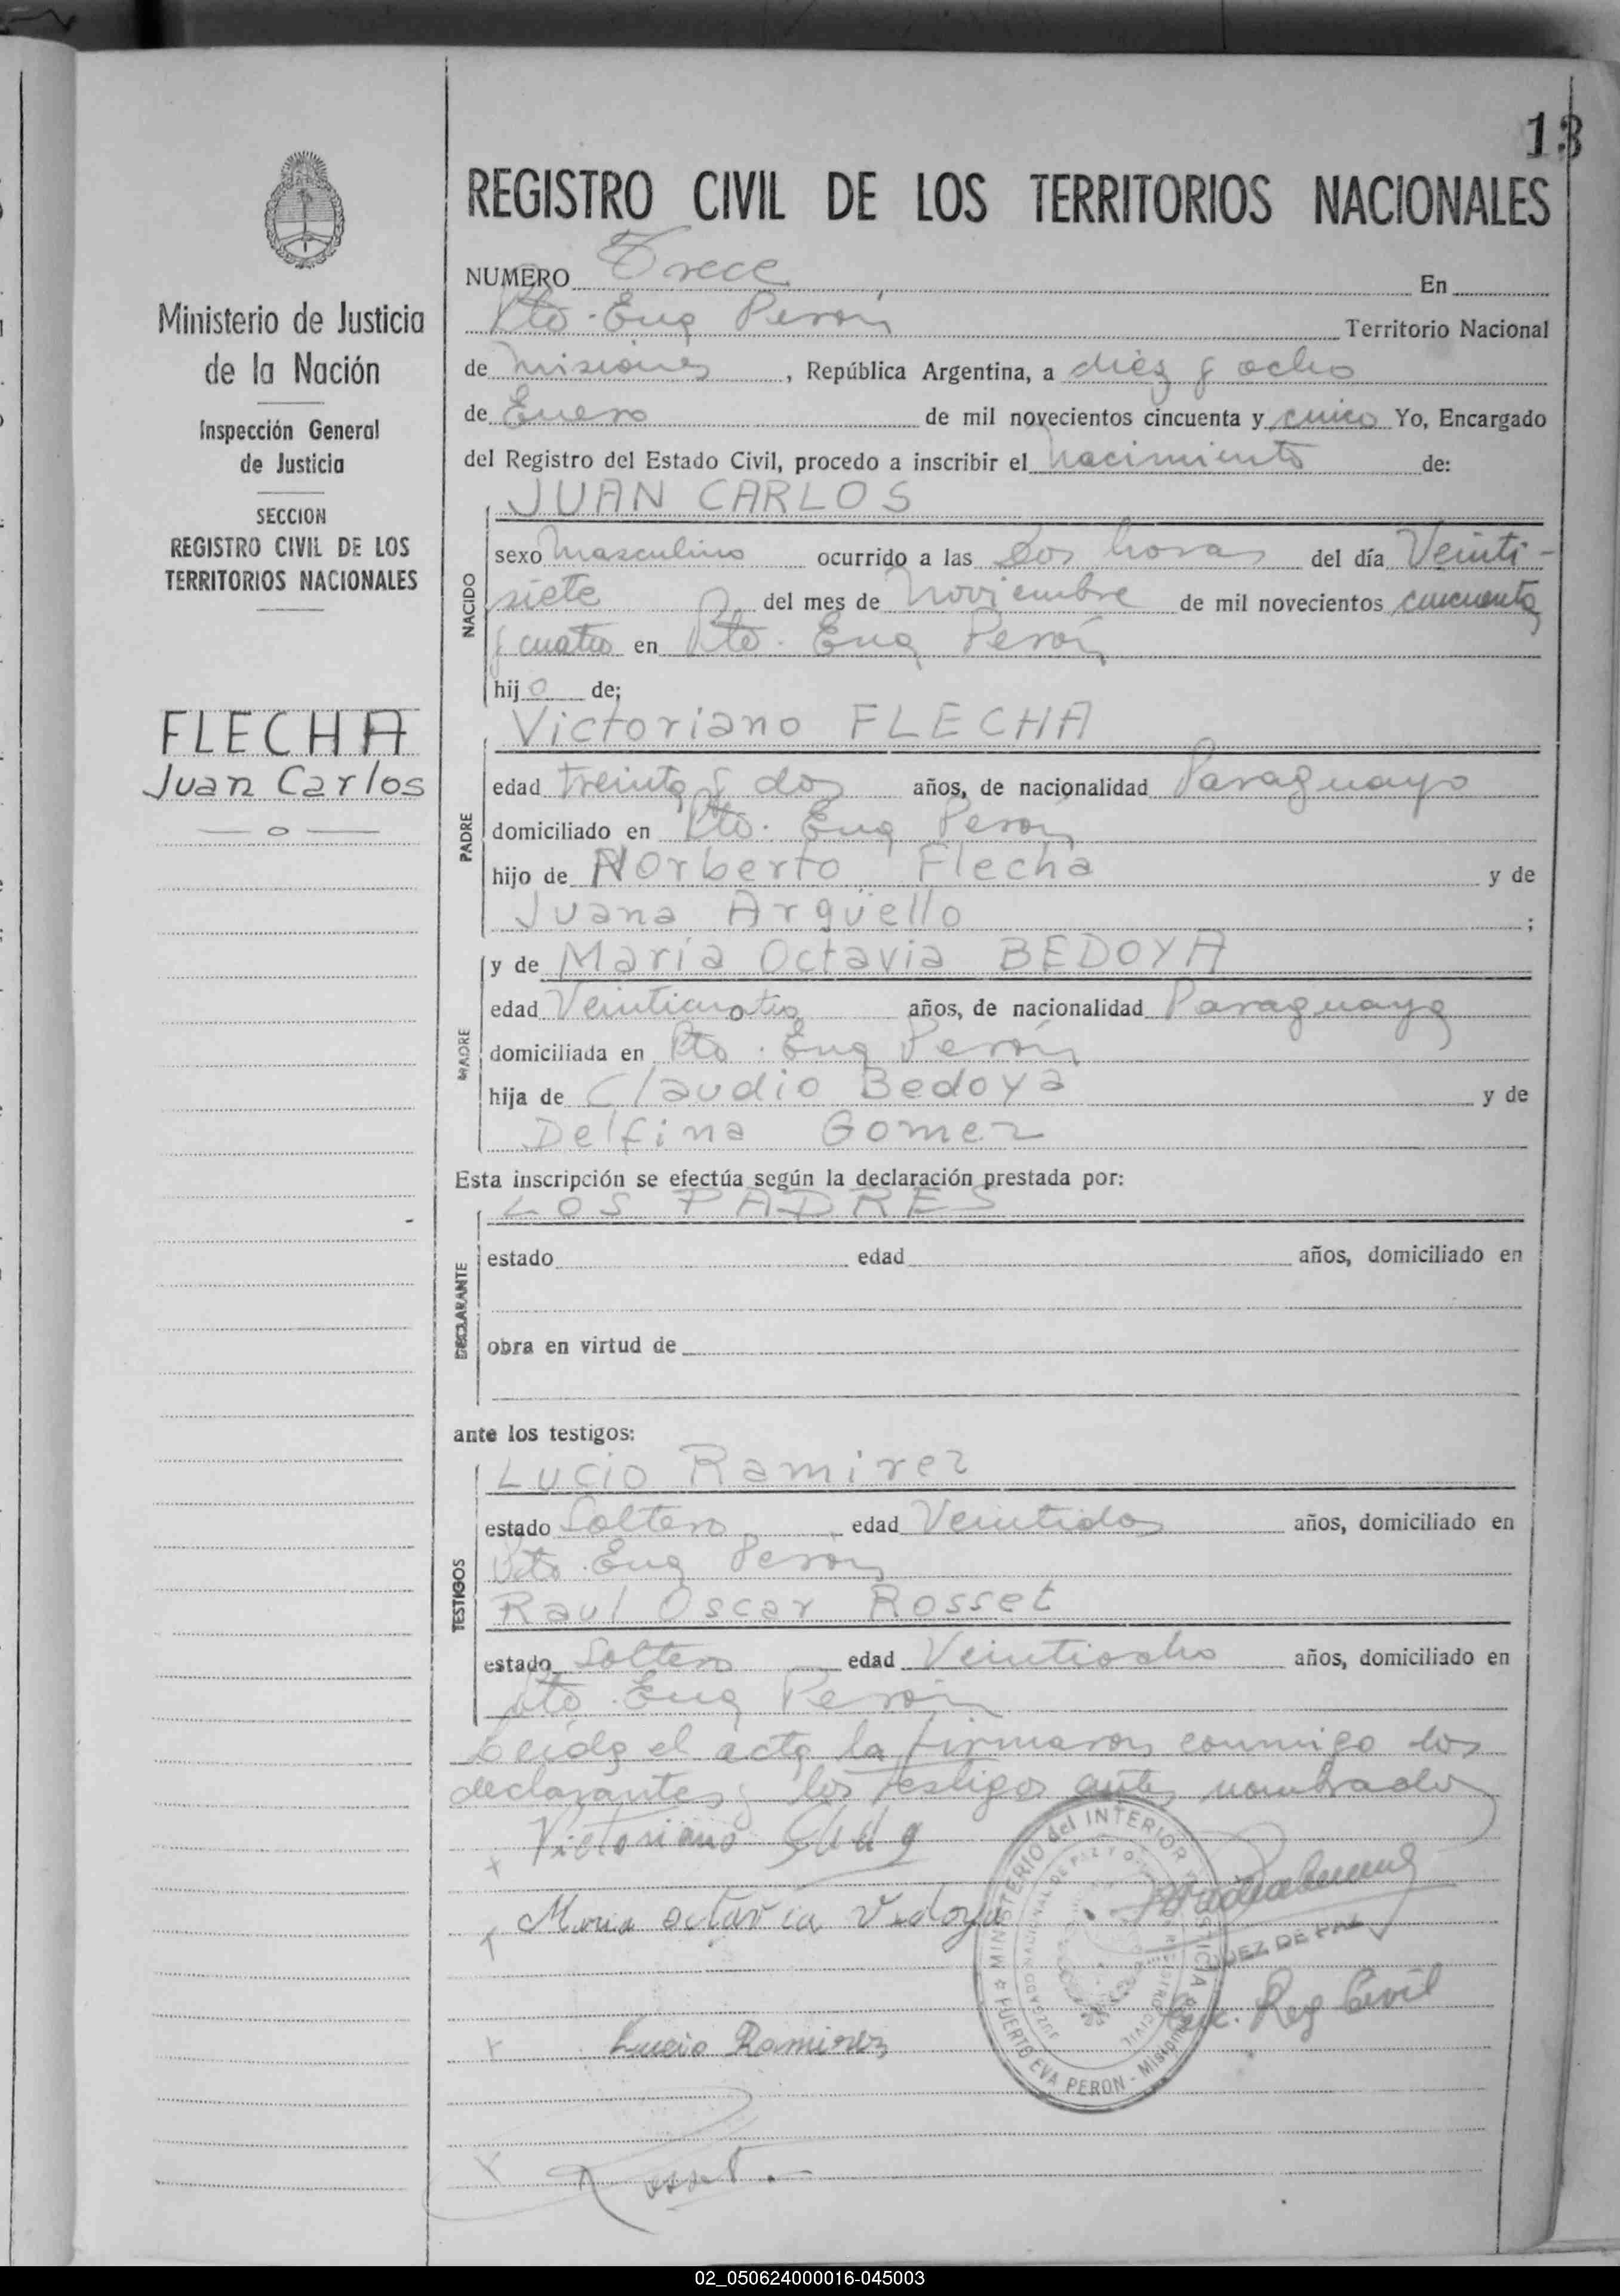 13
REGISTRO CIVIL DE LOS TERRITORIOS NACIONALES
Ministerio de Justicia
de la Nación
Inspección General
de Justicia
SECCION
REGISTRO CIVIL DE LOS
TERRITORIOS NACIONALES
FLECHA
Juan Carlos
NUMERO Trece En
Pto. Eva Perón Territorio Nacional
de Misiones, República Argentina, a diez y ocho
de Enero de mil novecientos cincuenta y cinco Yo, Encargado
del Registro del Estado Civil, procedo a inscribir el nacimiento de:
NACIDO
JUAN CARLOS
sexo masculino ocurrido a las dos horas del día Veinti-
siete del mes de Noviembre de mil novecientos cincuenta
y cuatro en Pto. Eva Perón
hijo de;
PADRE
Victoriano FLECHA
edad treinta y dos años, de nacionalidad Paraguayo
domiciliado en Pto. Eva Perón
hijo de Norberto Flecha y de
Juana Argüello ;
MADRE
y de María Octavia BEDOYA
edad Veinticuatro años, de nacionalidad Paraguaya
domiciliada en Pto. Eva Perón
hija de Claudio Bedoya y de
Delfina Gomez
Esta inscripción se efectúa según la declaración prestada por:
DECLARANTE
LOS PADRES
estado edad años, domiciliado en
obra en virtud de
ante los testigos:
TESTIGOS
Lucio Ramirez
estado Soltero edad Veintidos años, domiciliado en
Pto. Eva Perón
Raul Oscar Rosset
estado Soltero edad Veintiocho años, domiciliado en
Pto. Eva Perón
Leída el acta la firmaron conmigo los
declarantes y los testigos ante nombrados
Victoriano
Maria octavia Vedoya
JUEZ DE PAZ
Enc. Reg Civil
MINISTERIO del INTERIOR
PUERTO EVA PERON - Misiones
Lucio Ramirez
Rosset.
02_050624000016-045003